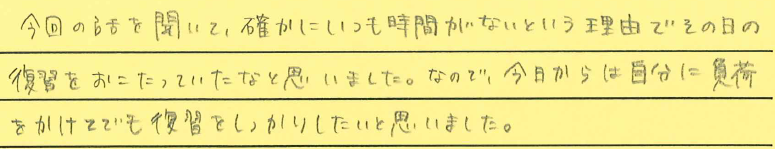 今回の話を聞いて、確かにいつも時間がないという理由でその日の
復習をおこたっていたなと思いました。なので、今日からは自分に負荷
をかけてでも復習をしっかりしたいと思いました。